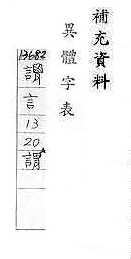 補充資料
異體字表
13682
謂
言
13
20
謂